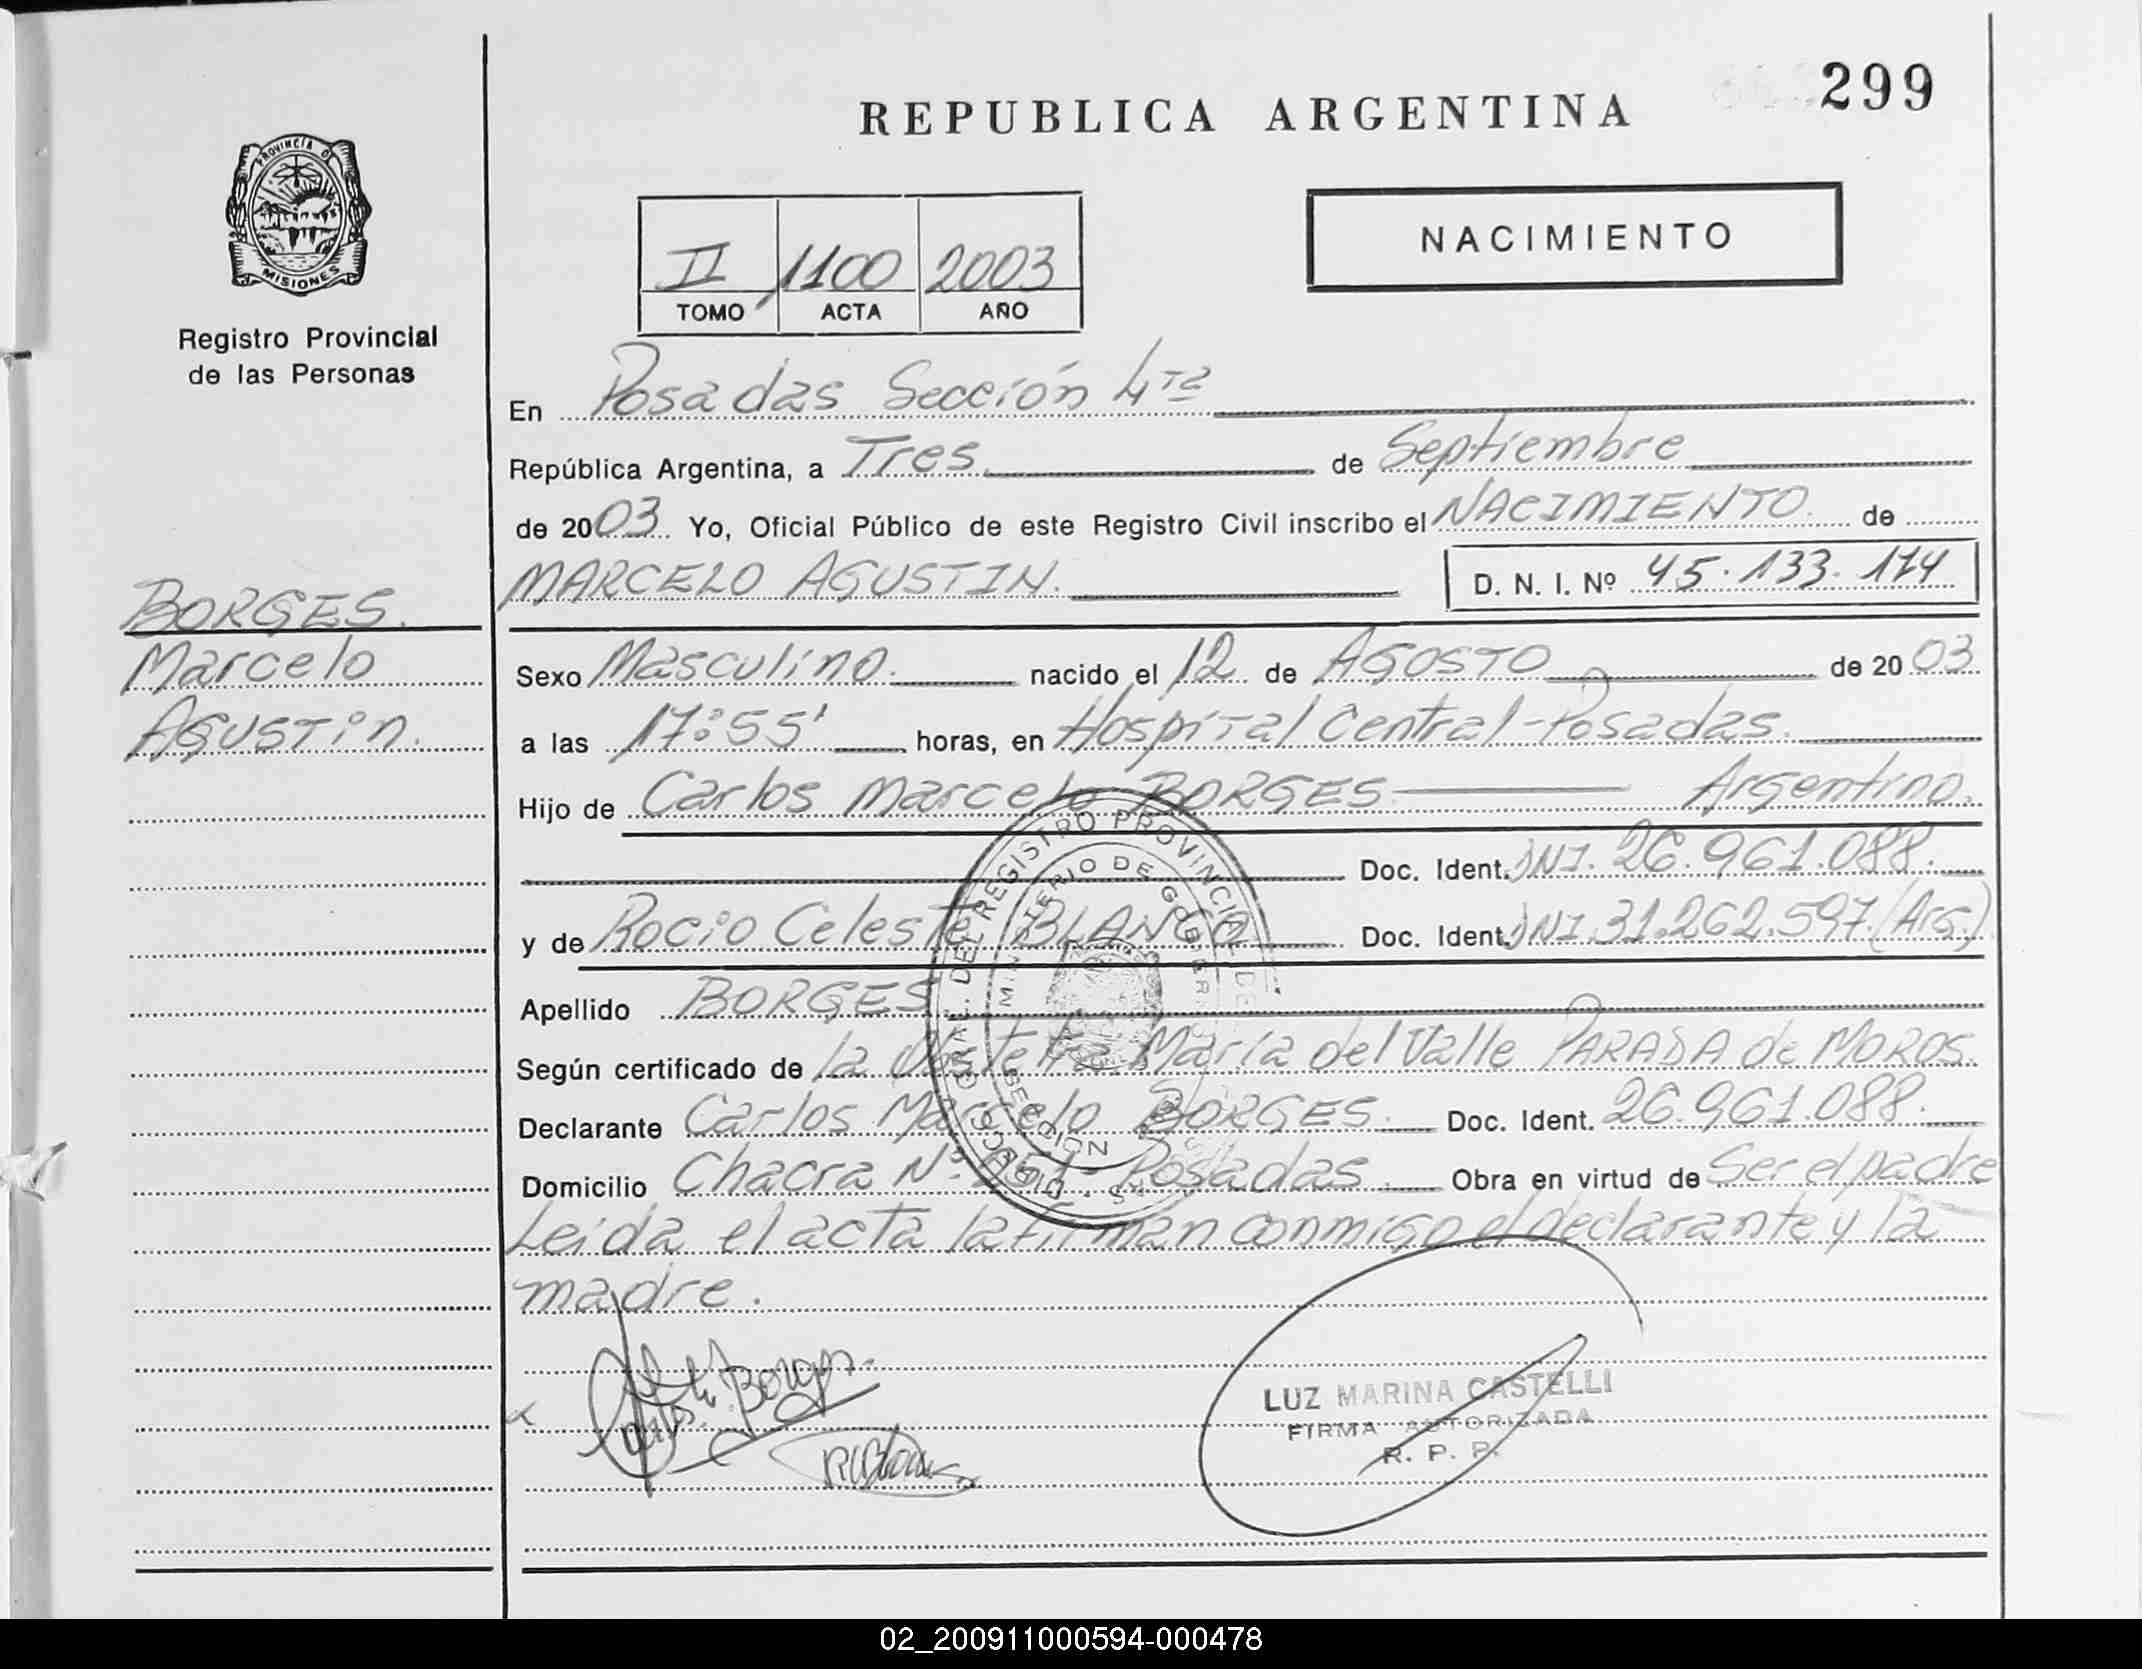 299
REPUBLICA ARGENTINA
PROVINCIA DE
MISIONES
Registro Provincial
de las Personas
NACIMIENTO
II 1100 2003
TOMO ACTA AÑO
En Posadas Sección 4ta
República Argentina, a Tres de Septiembre
de 2003. Yo, Oficial Público de este Registro Civil inscribo el NACIMIENTO. de
MARCELO AGUSTIN. D. N. I. Nº 45.133.114
BORGES.
Marcelo
AGUSTin.
Sexo Masculino. nacido el 12 de AGOSTO de 2003
a las 17:55' horas, en Hospital Central-Posadas.
Hijo de Carlos Marcelo BORGES Argentino.
Doc. Ident. DNI. 26.961.088.
y de Rocio Celeste BLANCO Doc. Ident. DNI.31.262.597.(Arg.)
Apellido BORGES
Según certificado de la Obstetra María del Valle PARADA de MOROS.
Declarante Carlos Marcelo BORGES. Doc. Ident. 26.961.088.
Domicilio Chacra Nº Posadas. Obra en virtud de Ser el padre
Leida el acta la firman conmigo el declarante y la
madre.
Borges
LUZ MARINA CASTELLI
FIRMA AUTORIZADA
R. P. P.
02_200911000594-000478